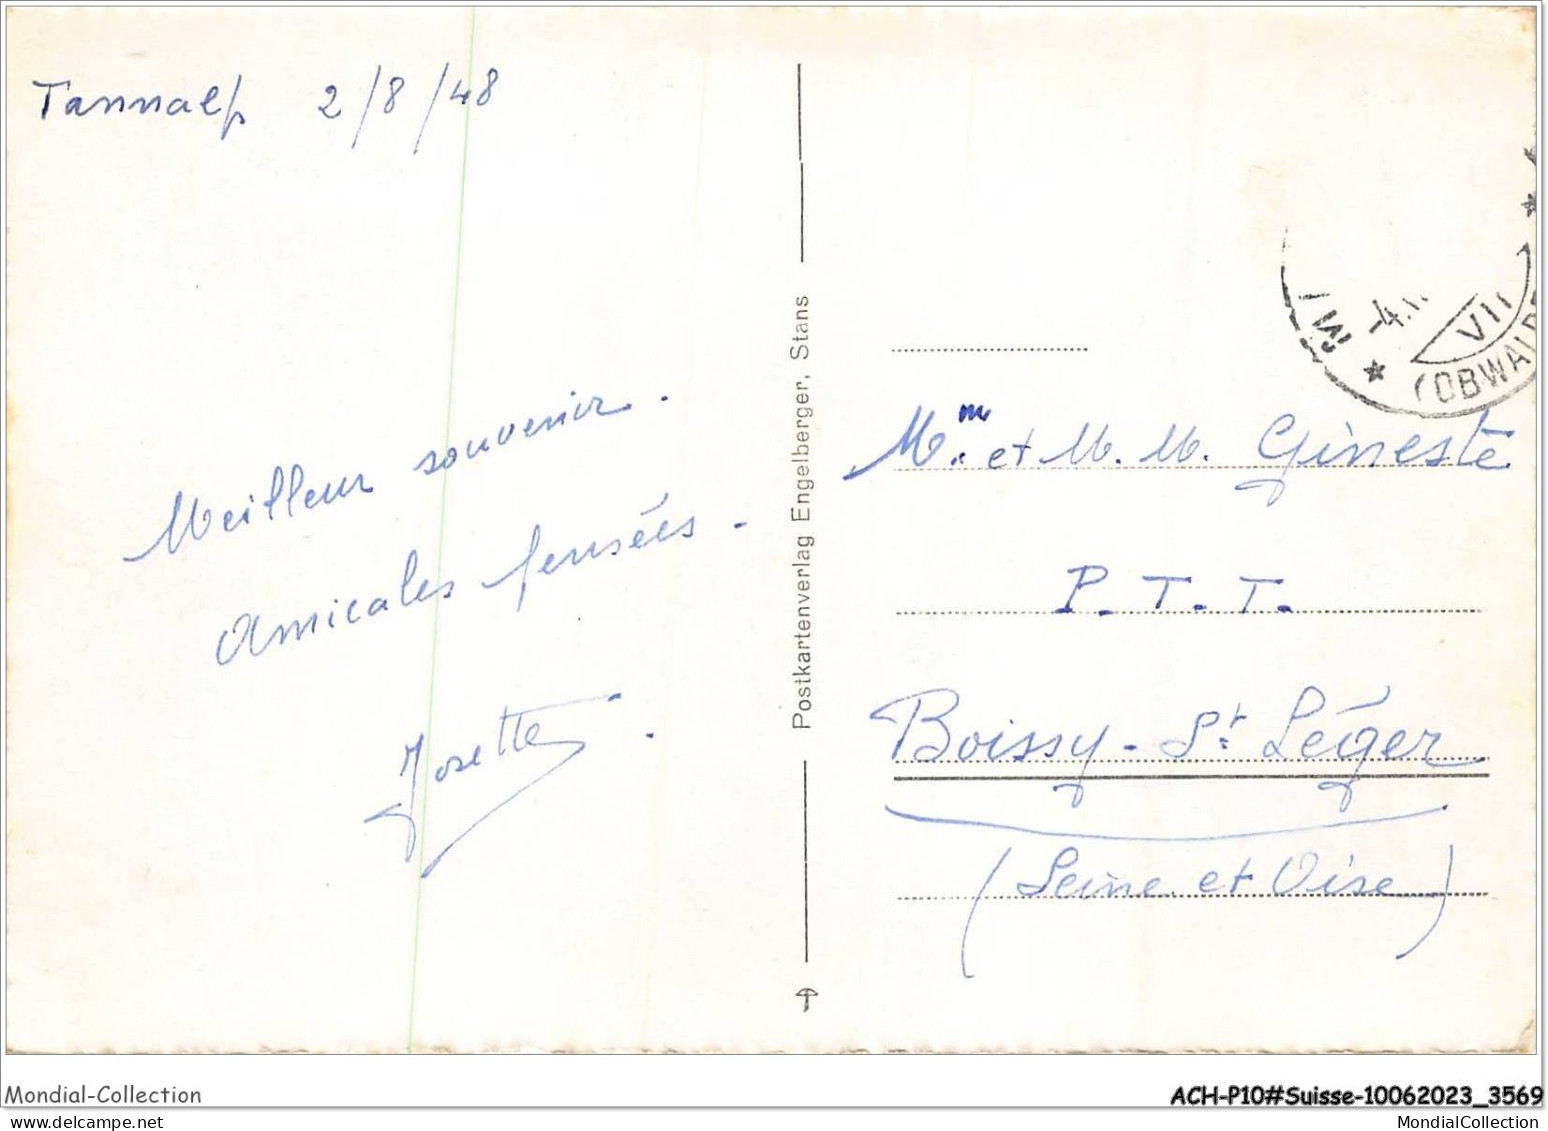 Tannalp 2/8/48
Meilleur souvenir.
Amicales pensées -
Josette.
Postkartenverlag Engelberger, Stans
-4.
VII
(OBWALD
Mm. et M. M. Gineste
P. T. T.
Boissy - St Léger
(Seine et Oise)
Mondial-Collection
ACH-P10#Suisse-10062023_3569
MondialCollection